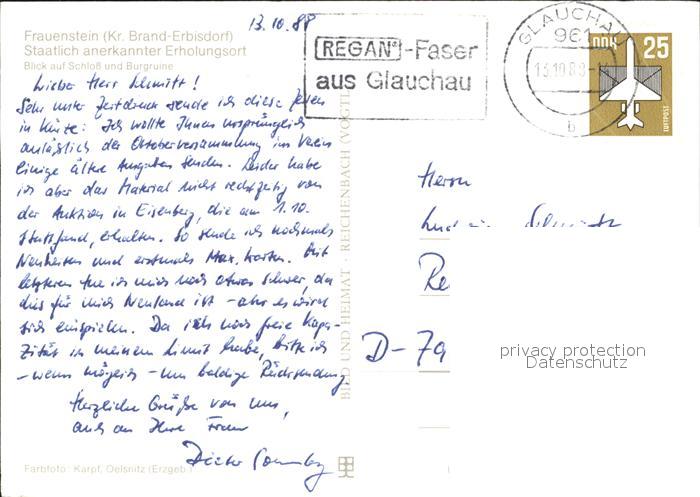 13.10.88
Frauenstein (Kr. Brand-Erbisdorf)
Staatlich anerkannter Erholungsort
Blick auf Schloß und Burgruine
Lieber Herr Schmitt!
Sehr unter Zeitdruck sende ich diese Zeilen
in Kürze: Ich wollte Ihnen ursprünglich
anläßlich der Oktoberversammlung im Verein
einige ältere Ausgaben senden. Leider habe
ich aber das Material nicht rechtzeitig von
der Auktion in Eisenberg, die am 1.10.
stattfand, erhalten. So sende ich nochmals
Neuheiten und erstmals Max. Karten. Mit
letzteren tue ich mich noch etwas schwer, da
dies für mich Neuland ist - aber es wird
sich einspielen. Da ich noch freie Kapa-
zität in meinem Limit habe, bitte ich
- wenn möglich - um baldige Rücksendung.
Herzliche Grüße von uns,
auch an Ihre Frau
Dieter
Farbfoto: Karpf, Oelsnitz (Erzgeb.)
BILD UND HEIMAT · REICHENBACH (VOGTL)
REGAN-Faser
aus Glauchau
GLAUCHAU
961
13.10.88
b
DDR 25
LUFTPOST
Herrn
Re
D-79
privacy protection
Datenschutz